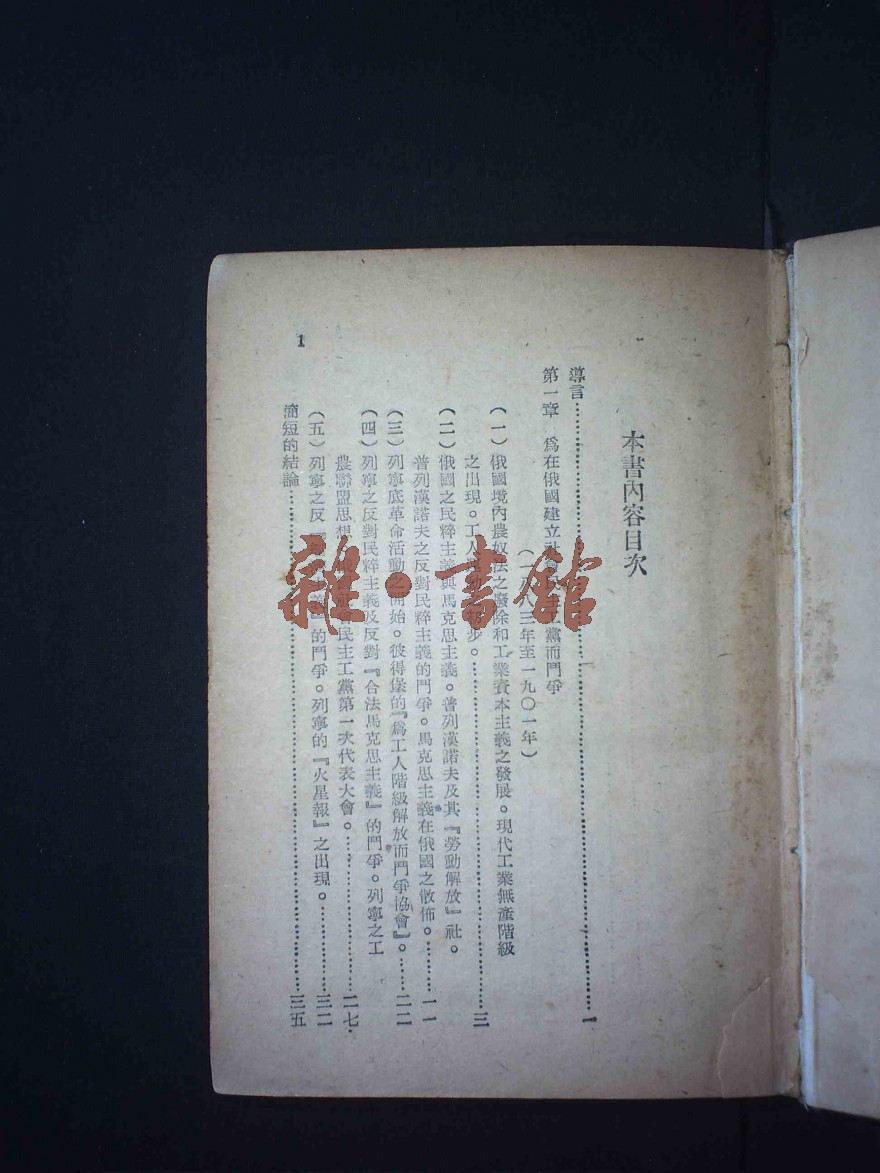 本書內容目次
導言……一
第一章 爲在俄國建立社會民主工黨而鬥爭
(一八八三年至一九〇一年)
(一)俄國境內農奴法之廢除和工業資本主義之發展。現代工業無產階級
之出現。工人運動初步。……三
(二)俄國之民粹主義與馬克思主義。普列漢諾夫及其『勞動解放』社。
普列漢諾夫之反對民粹主義的鬥爭。馬克思主義在俄國之散佈。……一一
(三)列寧底革命活動之開始。彼得堡的『爲工人階級解放而鬥爭協會』。……二二
(四)列寧之反對民粹主義及反對『合法馬克思主義』的鬥爭。列寧之工
農聯盟思想 民主工黨第一次代表大會。……二七
(五)列寧之反『 』的鬥爭。列寧的『火星報』之出現。……三二
簡短的結論……三五
1
雜·書館